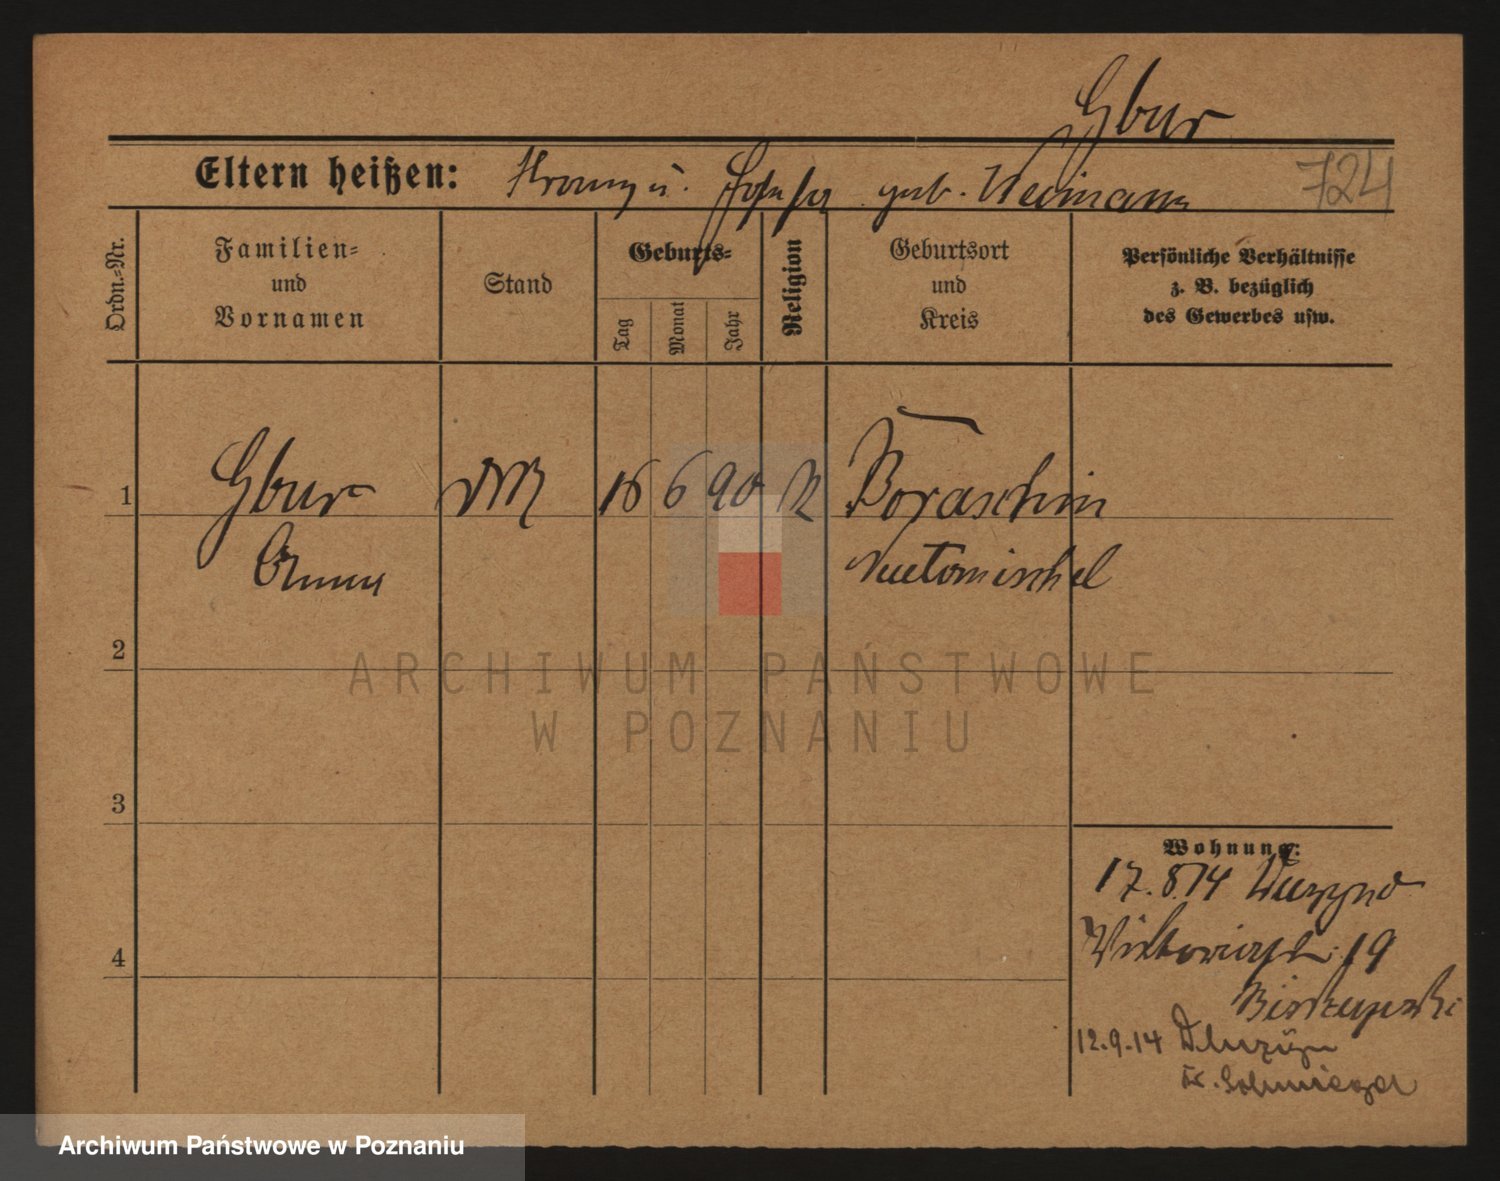 Gbur
Eltern heißen: Franz u. Josefa geb. Neumann
724
Ordn.-Nr.
Familien-
und
Vornamen
Stand
Geburts-
Tag
Monat
Jahr
Religion
Geburtsort
und
Kreis
Persönliche Verhältnisse
z. B. bezüglich
des Gewerbes usw.
1
Gbur
16 6 90
Boraschin
Anna
Neutomischel
2
ARCHIWUM PAŃSTWOWE
W POZNANIU
3
Wohnung:
17.8.14
Viktoriastr. 19
4
Biskupski
12.9.14
K. Schmiegel
Archiwum Państwowe w Poznaniu